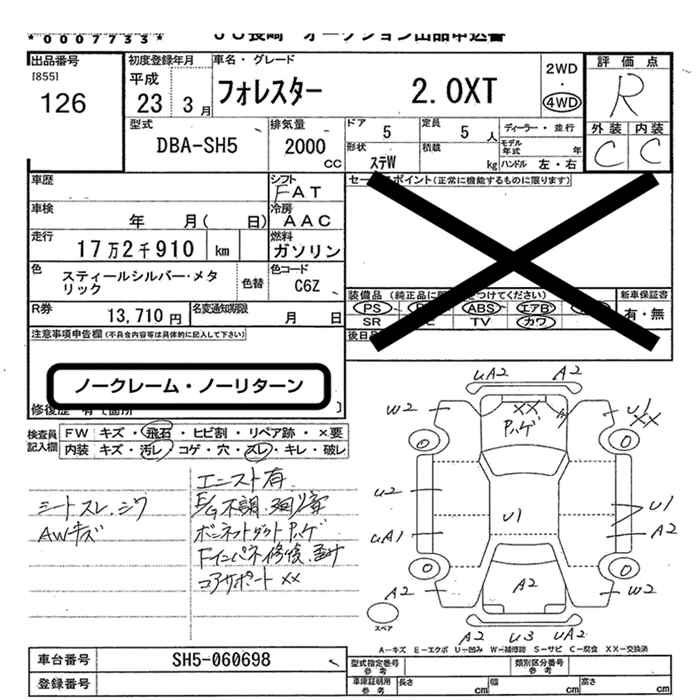 *0007733*
ＪＵ長崎 オークション出品申込書
出品番号 初度登録年月 車名・グレード 評価点
[855] 126
平成 23 3月
フォレスター 2.0XT
2WD 4WD
R
外装 内装
C C
型式 DBA-SH5
排気量 2000 CC
ドア 5 定員 5人 ディーラー・並行
形状 ステW 積載 kg
モデル年式 年
ハンドル 左・右
車歴
シフト FAT
セールスポイント(正常に機能するものに限ります)
車検 年 月( 日)
冷房 AAC
走行 17万2千910 km
燃料 ガソリン
色 スティールシルバー・メタリック 色替
色コード C6Z
装備品 (純正品に をつけてください) 新車保証書
PS ABS エアB
SR TV カワ
有・無
R券 13,710円 名変通知期限 月 日
後日
注意事項申告欄(不具合内容等は具体的に記入して下さい)
ノークレーム・ノーリターン
修復歴 有(箇所 )
検査員記入欄
FW キズ・飛石・ヒビ割・リペア跡・×要
内装 キズ・汚レ・コゲ・穴・スレ・キレ・破レ
シートスレ、シワ
AWキズ
エンスト有
E/g不調、廻り客
ボンネットダクトPハゲ
Fインパネ修復、
コアサポートXX
UA2 A2
W2 XX Pハゲ U1 XX
U2 U1 U1
UA1 A2
A2 A2 W2
A2 U3 UA2
スペア
A—キズ E—エクボ U—凹み W—補修跡 S—サビ C—腐食 XX—交換済
車台番号 SH5-060698
登録番号
型式指定番号 参考 類別区分番号 参考
車庫証明用 参考 長さ cm 幅 cm 高さ cm